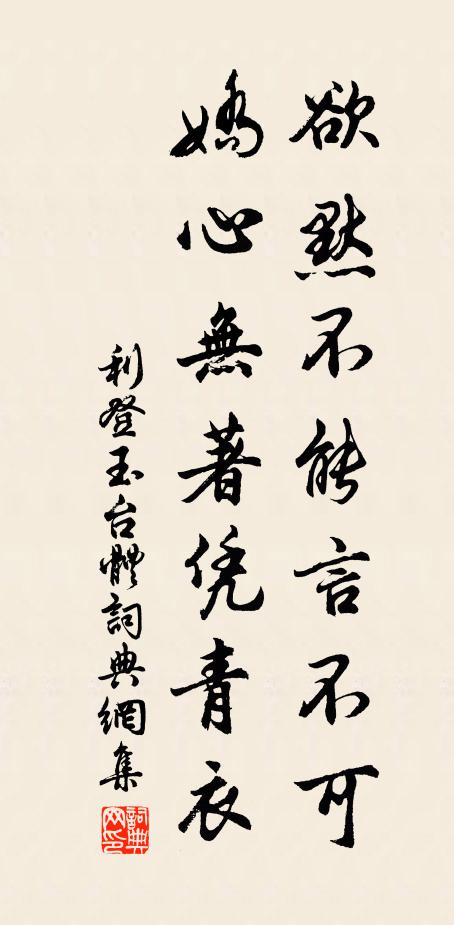 欲默不能言不可
嬌心無著凭青衣
利登玉台體詞典網集
詞典网印